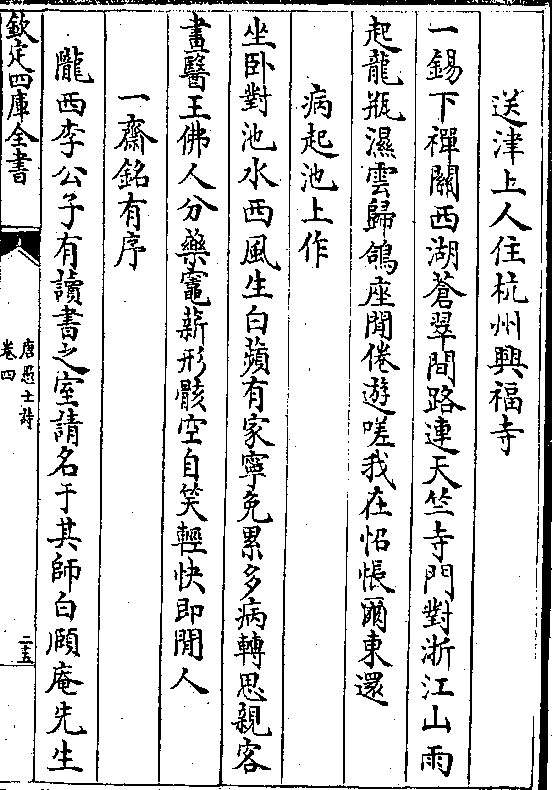 送津上人住杭州興福寺
一錫下禪關西湖蒼翠間路連天竺寺門對浙江山雨
起龍瓶濕雲歸鴿座閒倦遊嗟我在怊悵爾東還
病起池上作
坐卧對池水西風生白蘋有家寧免累多病轉思親客
畫醫王佛人分藥竈薪形骸空自笑輕快即閒人
一齋銘有序
隴西李公子有讀書之室請名于其師白願庵先生
欽定四庫全書
唐愚士詩
卷四
二五